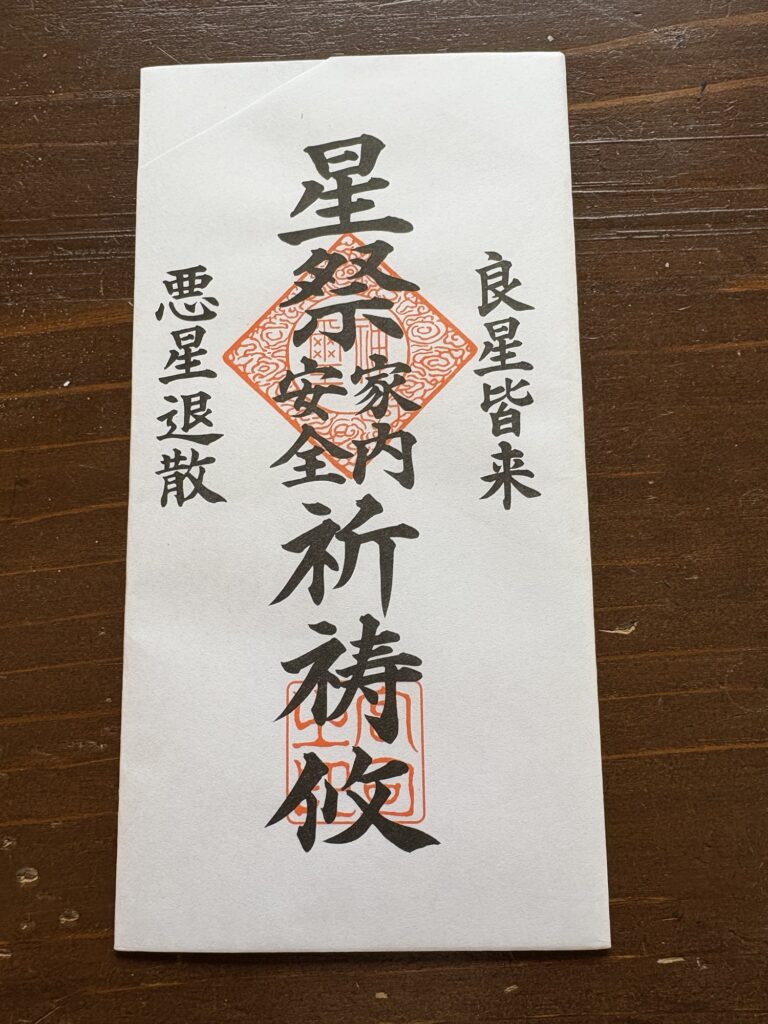 良星皆来
星祭家内安全祈祷攸
悪星退散